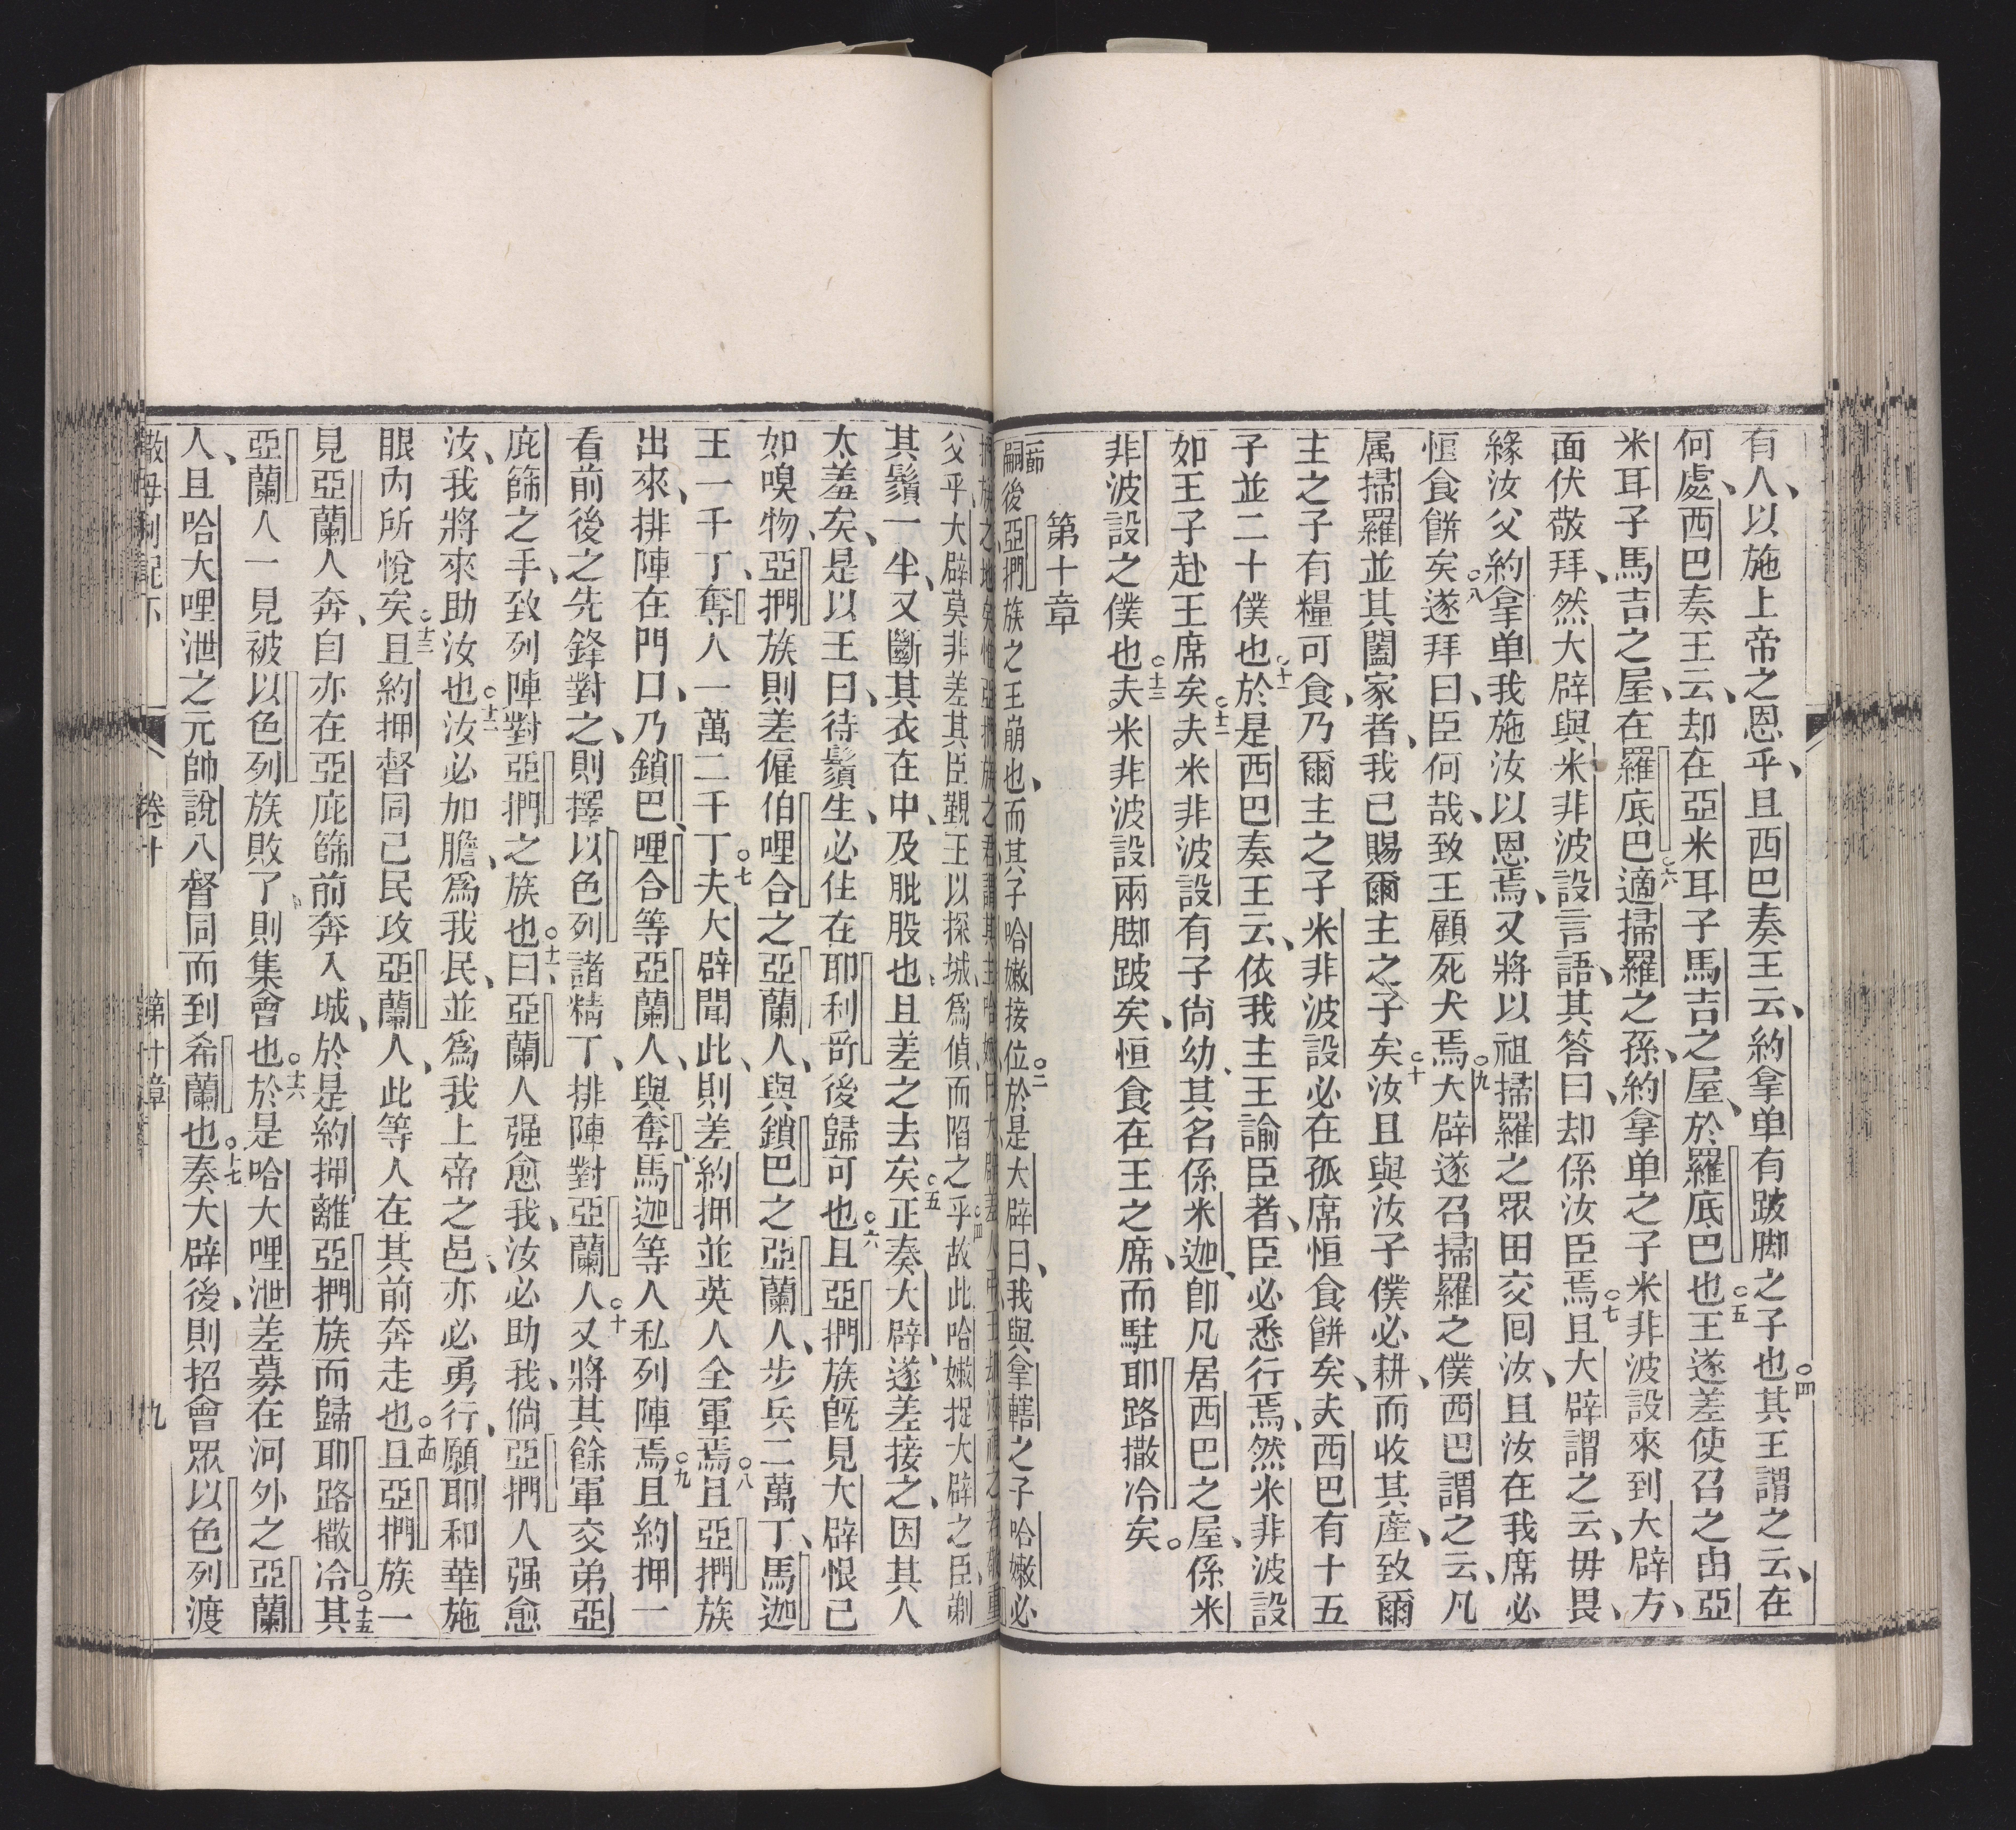 有人、以施上帝之恩乎、且西巴奏王云、約拿单有跛脚之子也○四其王謂之云、在
何處、西巴奏王云、却在亞米耳子馬吉之屋、於羅底巴也○五王遂差使召之由亞
米耳子馬吉之屋、在羅底巴○六適掃羅之孫、約拿单之子米非波設來到大辟方、
面伏敬拜、然大辟與米非波設言語、其答曰、却係汝臣焉○七且大辟謂之云、毋畏、
緣汝父約拿单我施汝以恩焉、又將以祖掃羅之眾田交囘汝、且汝在我席必
恒食餅矣○八遂拜曰、臣何哉、致王顧死犬焉○九大辟遂召掃羅之僕西巴謂之云、凡
属掃羅並其闔家者、我已賜爾主之子矣○十汝且與汝子僕必耕、而收其產、致爾
主之子有糧可食、乃爾主之子米非波設必在孤席恒食餅矣、夫西巴有十五
子並二十僕也○十一於是西巴奏王云、依我主王諭臣者、臣必悉行焉、然米非波設
如王子赴王席矣○十二夫米非波設有子尙幼、其名係米迦、卽凡居西巴之屋、係米
非波設之僕也○十三夫米非波設兩脚跛矣、恒食在王之席、而駐耶路撒冷矣。
第十章
一節嗣後亞捫族之王崩也、而其子哈嫩接位○二於是大辟曰、我與拿轄之子哈嫩必
父乎、大辟莫非差其臣覲王以探城、爲偵、而陷之乎○四故此哈嫩捉大辟之臣、剃
其鬚一半、又斷其衣在中、及肶股也、且差之去矣○五正奏大辟、遂差接之、因其人
太羞矣、是以王曰、待鬚生、必住在耶利哥後歸可也○六且亞捫族旣見大辟恨己
如嗅物、亞捫族則差僱伯哩合之亞蘭人、與鎖巴之亞蘭人、步兵二萬丁、馬迦
王一千丁、奪人一萬二千丁○七夫大辟聞此、則差約押並英人全軍焉○八且亞捫族
出來、排陣在門口、乃鎖巴、哩合等亞蘭人、與奪、馬迦等人私列陣焉○九且約押一
看前後之先鋒對之、則擇以色列諸精丁、排陣對亞蘭人○十又將其餘軍交弟亞
庇篩之手、致列陣對亞捫之族也○十一曰、亞蘭人强愈我、汝必助我、倘亞捫人强愈
汝、我將來助汝也○十二汝必加膽、爲我民、並爲我上帝之邑、亦必勇行、願耶和華施
眼內所悅矣○十三且約押督同己民攻亞蘭人、此等人在其前奔走也○十四且亞捫族一
見亞蘭人奔、自亦在亞庇篩前奔入城、於是約押離亞捫族而歸耶路撒冷○十五其
亞蘭人一見被以色列族敗了、則集會也○十六於是哈大哩泄差募在河外之亞蘭
人、且哈大哩泄之元帥說八督同而到希蘭也○十七奏大辟後、則招會眾以色列渡
撒母耳記下 卷十 第十章 九